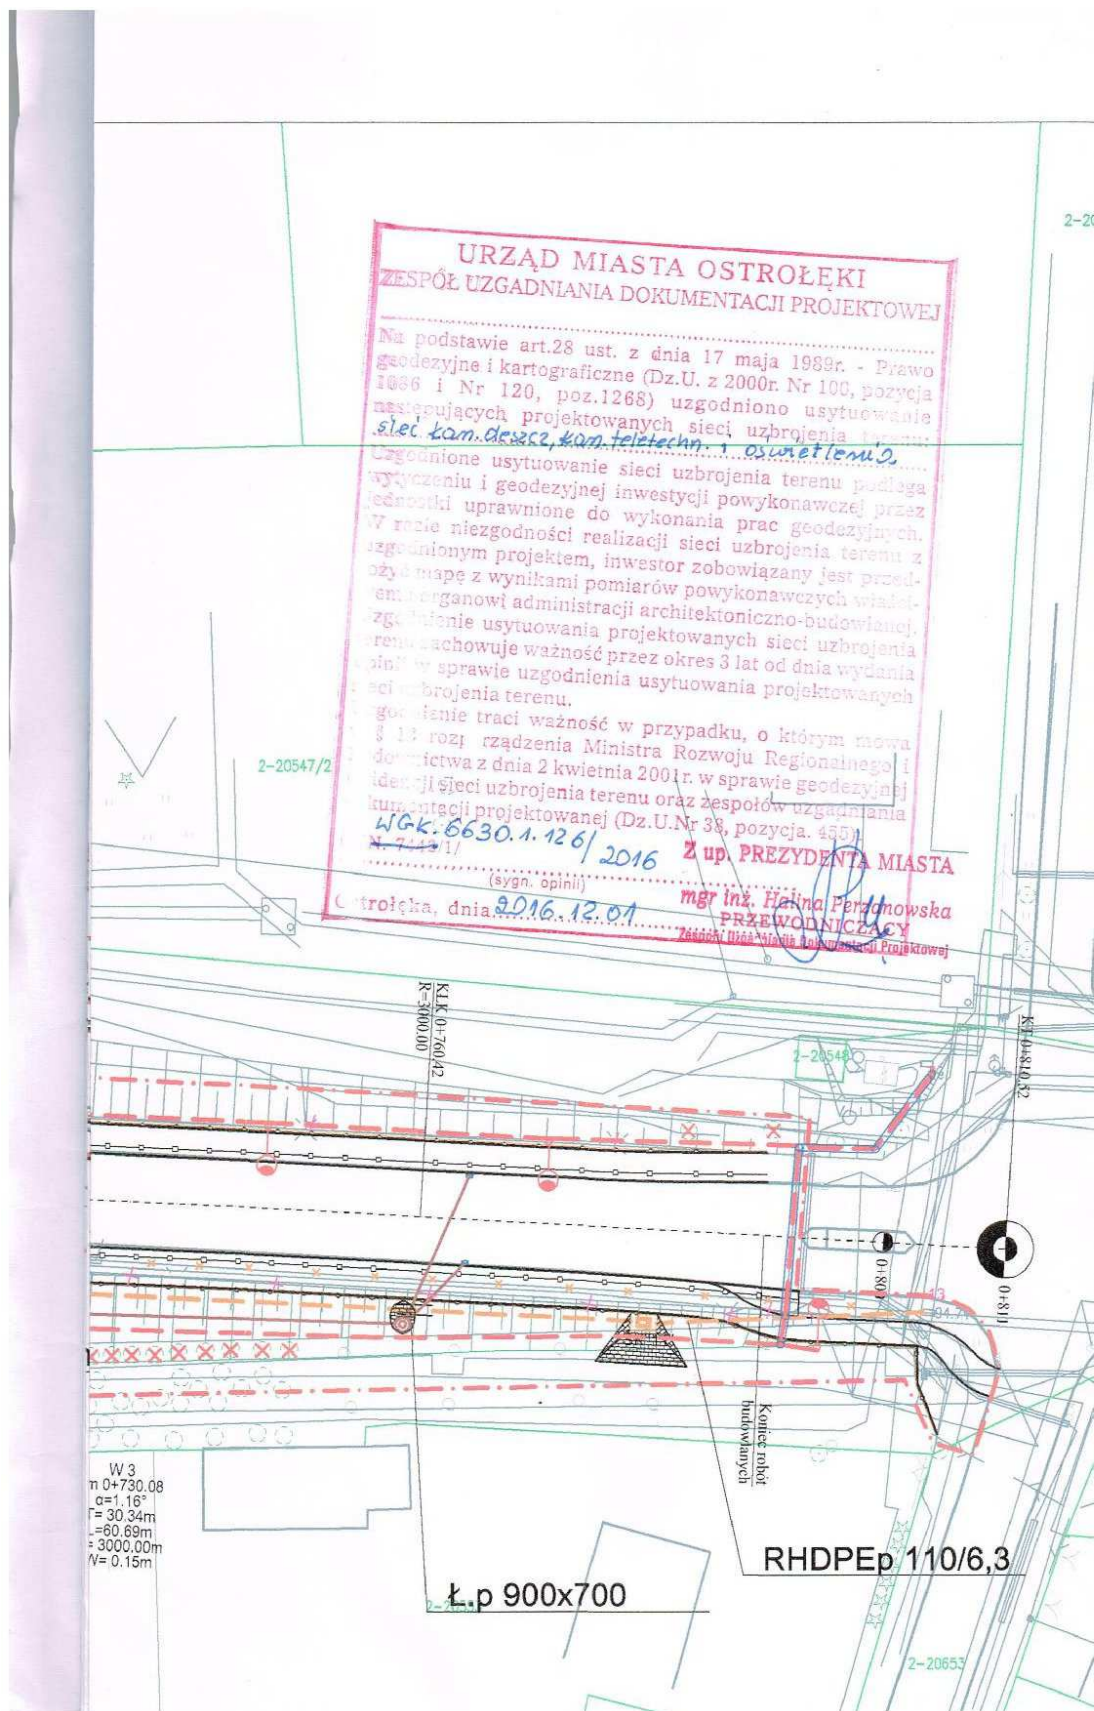 2-20
URZĄD MIASTA OSTROŁĘKI
ZESPÓŁ UZGADNIANIA DOKUMENTACJI PROJEKTOWEJ
Na podstawie art.28 ust. z dnia 17 maja 1989r. - Prawo
geodezyjne i kartograficzne (Dz.U. z 2000r. Nr 100, pozycja
1086 i Nr 120, poz.1268) uzgodniono usytuowanie
następujących projektowanych sieci uzbrojenia terenu:
sieć kan. deszcz, kan. teletechn. i oświetlenia
Uzgodnione usytuowanie sieci uzbrojenia terenu podlega
wytyczeniu i geodezyjnej inwestycji powykonawczej przez
jednostki uprawnione do wykonania prac geodezyjnych.
W razie niezgodności realizacji sieci uzbrojenia terenu z
uzgodnionym projektem, inwestor zobowiązany jest przed-
ożyć mapę z wynikami pomiarów powykonawczych właści-
emu organowi administracji architektoniczno-budowlanej.
zgodnienie usytuowania projektowanych sieci uzbrojenia
erenu zachowuje ważność przez okres 3 lat od dnia wydania
opinii w sprawie uzgodnienia usytuowania projektowanych
eci uzbrojenia terenu.
zgodnienie traci ważność w przypadku, o którym mowa
§ 1 rozp rządzenia Ministra Rozwoju Regionalnego i
downictwa z dnia 2 kwietnia 2001r. w sprawie geodezyjnej
idencji sieci uzbrojenia terenu oraz zespołów uzgadniania
kumentacji projektowanej (Dz.U.Nr 38, pozycja. 455)
WGK.6630.1.126/2016
Z up. PREZYDENTA MIASTA
(sygn. opinii)
mgr inż. Halina Perzanowska
PRZEWODNICZĄCY
Zespołu Uzgadniania Dokumentacji Projektowej
trołęka, dnia 2016.12.01
2-20547/2
KŁK 0+760.42
R=3000.00
2-20548
KT 0+810.52
0+80
0+811
13
Koniec robót
budowlanych
W 3
m 0+730.08
α=1.16°
T= 30.34m
=60.69m
= 3000.00m
W= 0.15m
RHDPEp 110/6,3
Ł.p 900x700
2-20653